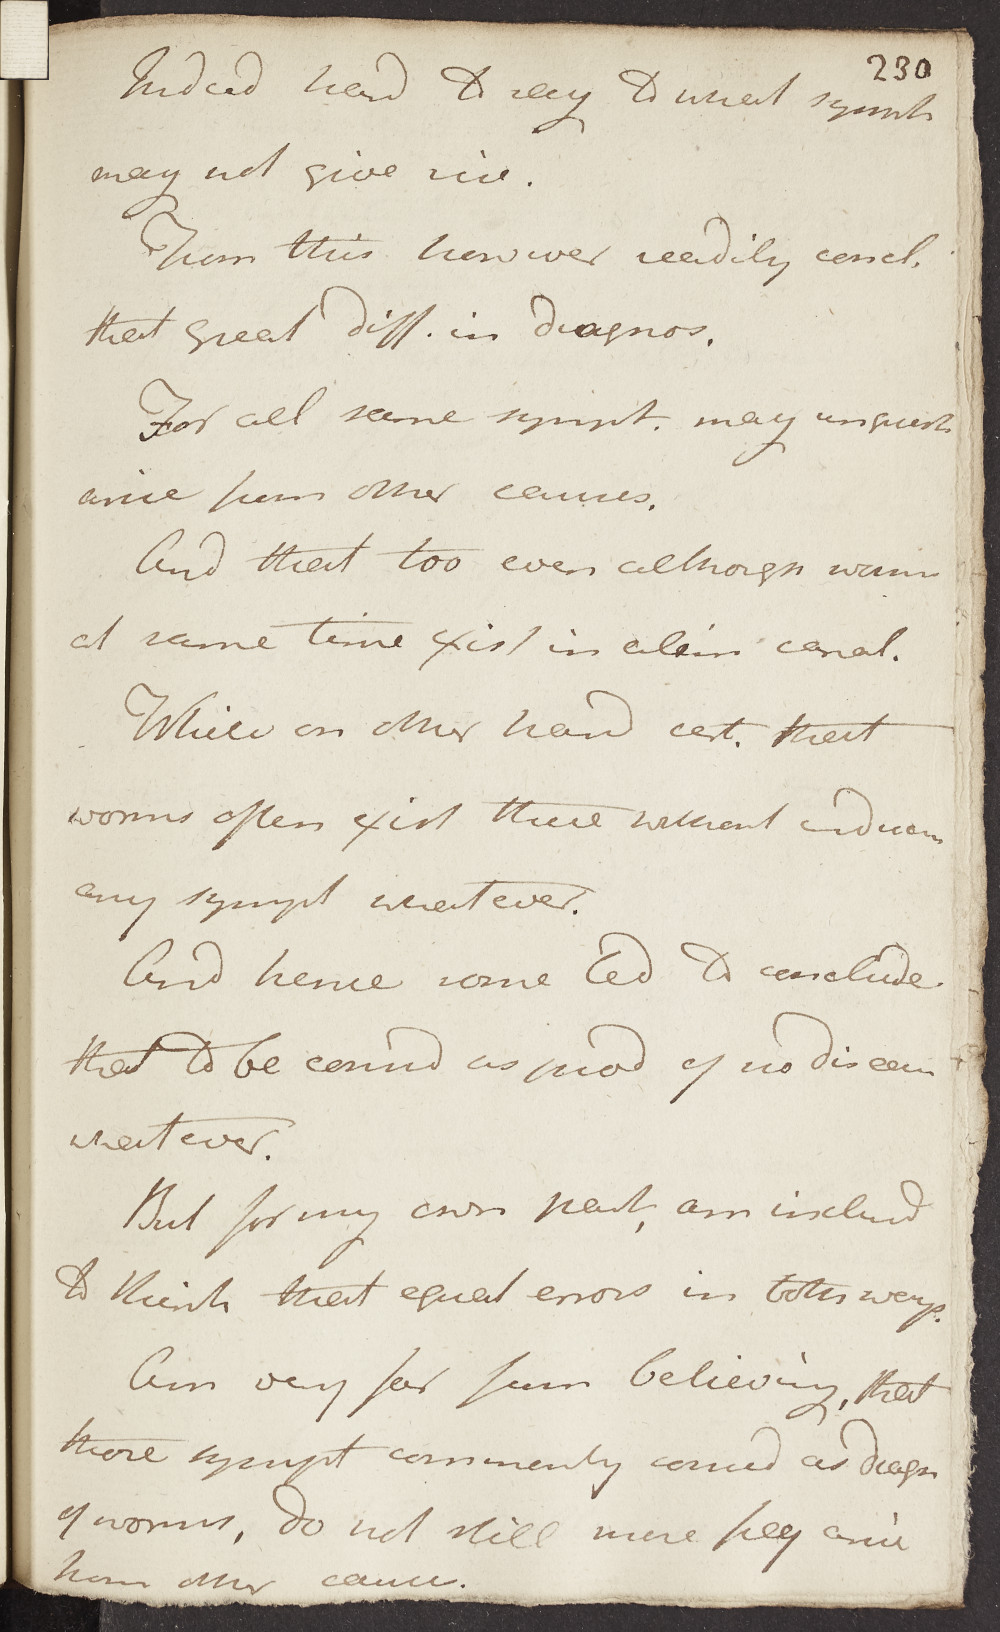 230
Indeed hard to say to what sympt
may not give rise.
From this however readily concl.
that great diff. in diagnos.
For all same sympt. may unquest
arise from other causes.
And that too even although worms
at same time exist in alim canal.
While on other hand cert. that
worms often exist there without inducing
any sympt whatever.
And hence some led to conclude
that to be consid as prod of no disease
whatever.
But for my own part, am inclind
to think that equal errors in both ways.
Am very far from believing, that
those sympt commonly consid as diagn
of worms, do not still more freq arise
from other cause.